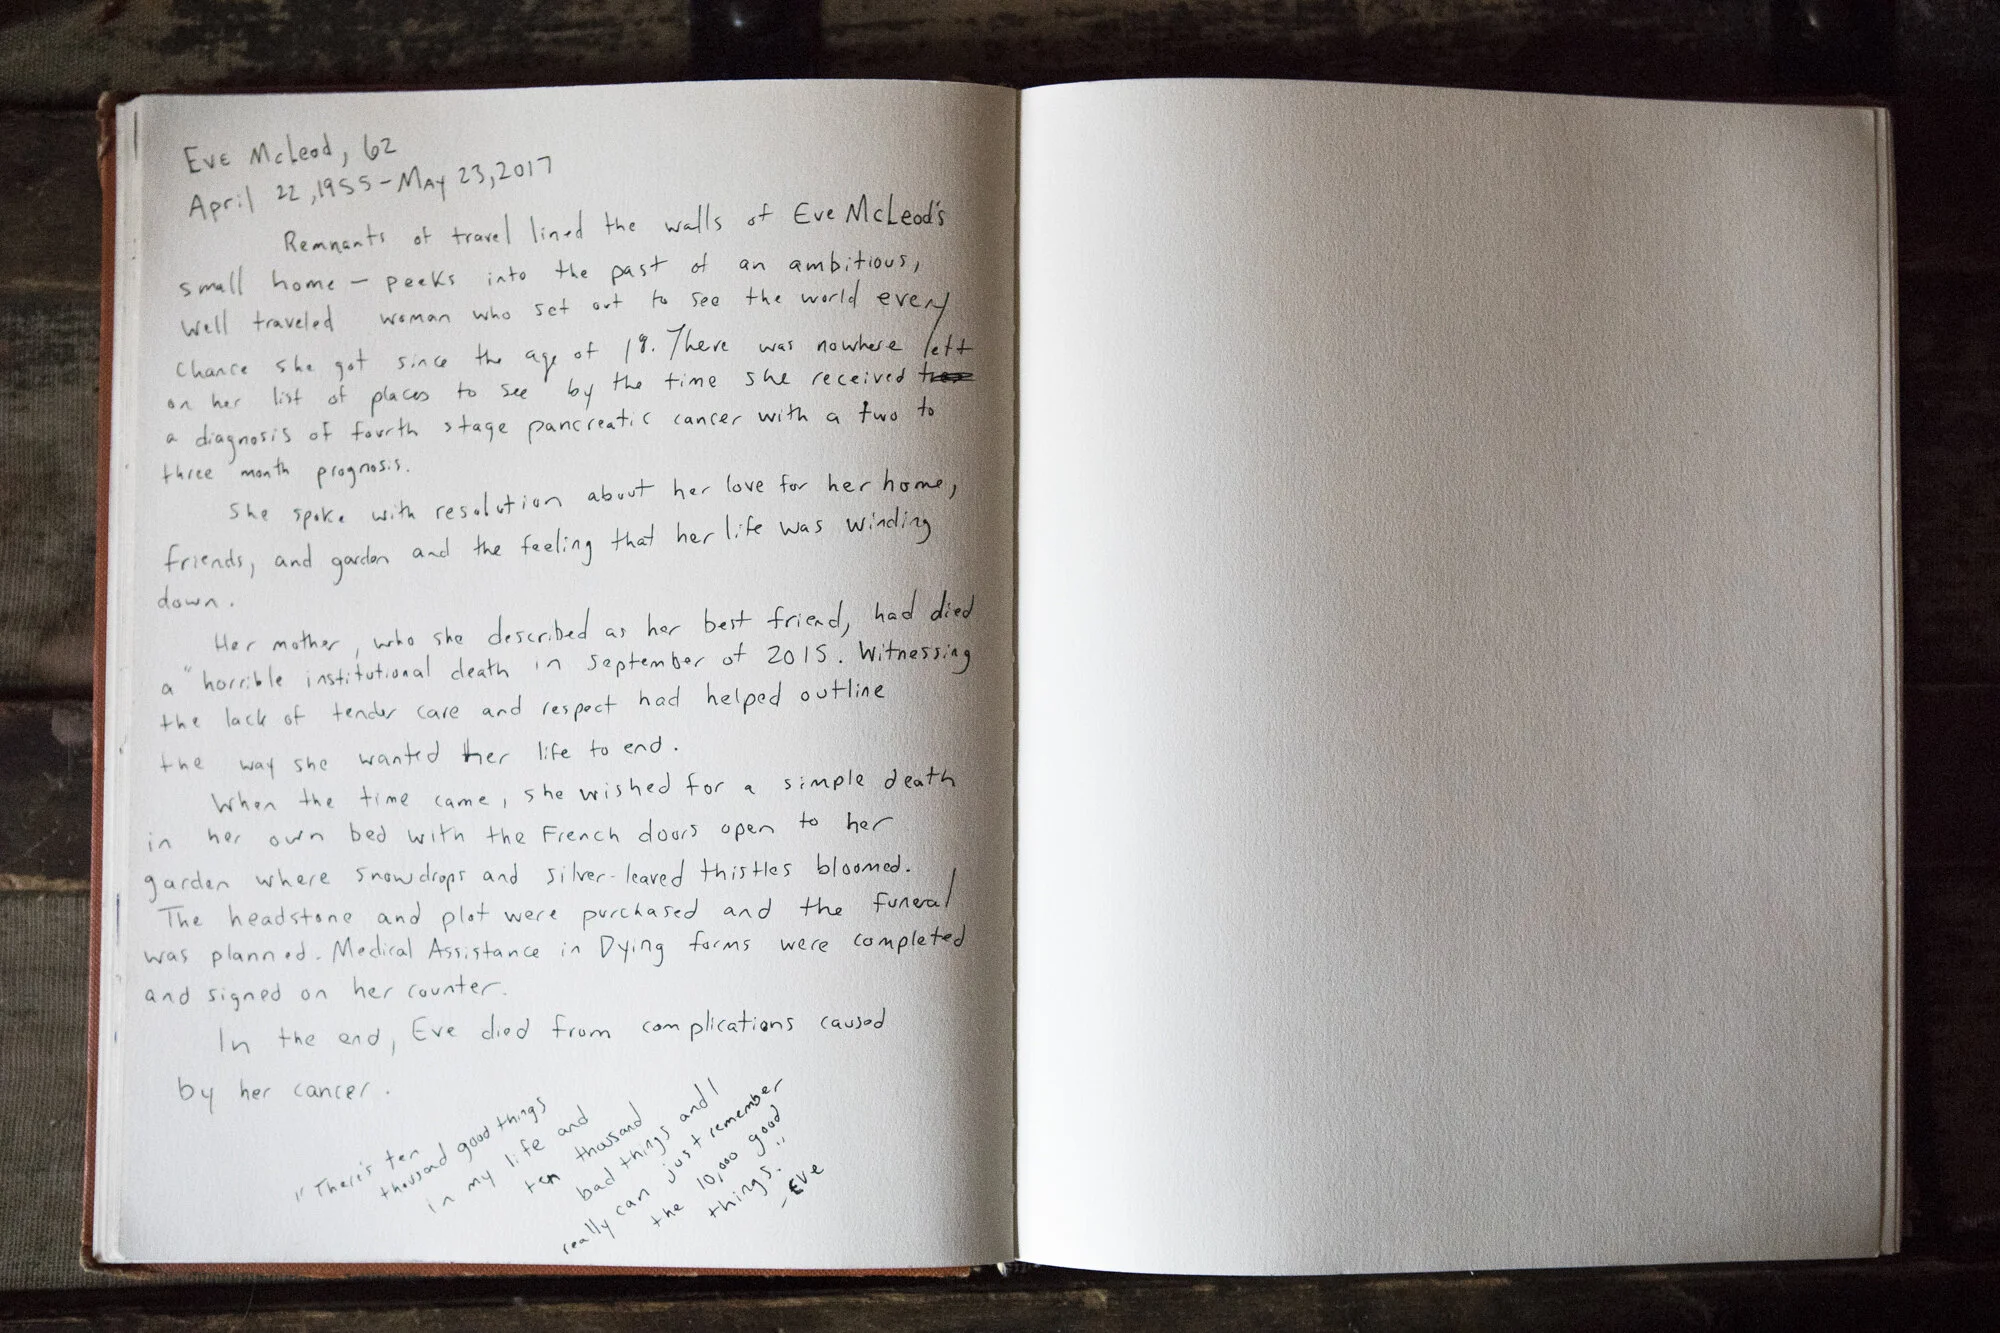 Eve McLeod, 62
April 22, 1955 - May 23, 2017
Remnants of travel lined the walls of Eve McLeod's
small home — peeks into the past of an ambitious,
well traveled woman who set out to see the world every
chance she got since the age of 18. There was nowhere left
on her list of places to see by the time she received
a diagnosis of fourth stage pancreatic cancer with a two to
three month prognosis.
She spoke with resolution about her love for her home,
friends, and garden and the feeling that her life was winding
down.
Her mother, who she described as her best friend, had died
a "horrible institutional death in September of 2015. Witnessing
the lack of tender care and respect had helped outline
the way she wanted her life to end.
When the time came, she wished for a simple death
in her own bed with the French doors open to her
garden where snowdrops and silver-leaved thistles bloomed.
The headstone and plot were purchased and the funeral
was planned. Medical Assistance in Dying forms were completed
and signed on her counter.
In the end, Eve died from complications caused
by her cancer.
"There's ten
thousand good things
in my life and
ten thousand
bad things and I
really can just remember
the 10,000 good
things."
- Eve